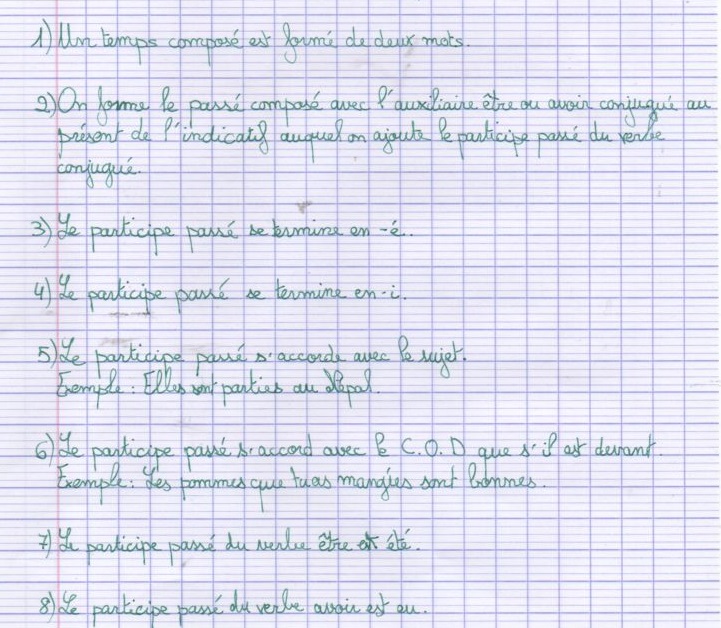 1) Un temps composé est formé de deux mots.
2) On forme le passé composé avec l'auxiliaire être ou avoir conjugué au
présent de l'indicatif auquel on ajoute le participe passé du verbe
conjugué.
3) Le participe passé se termine en -é..
4) Le participe passé se termine en -i.
5) Le participe passé s'accorde avec le sujet.
Exemple : Elles sont parties au Népal.
6) Le participe passé s'accord avec le C.O.D que s'il est devant.
Exemple : Les pommes que tu as mangées sont bonnes.
7) Le participe passé du verbe être est été.
8) Le participe passé du verbe avoir est eu.